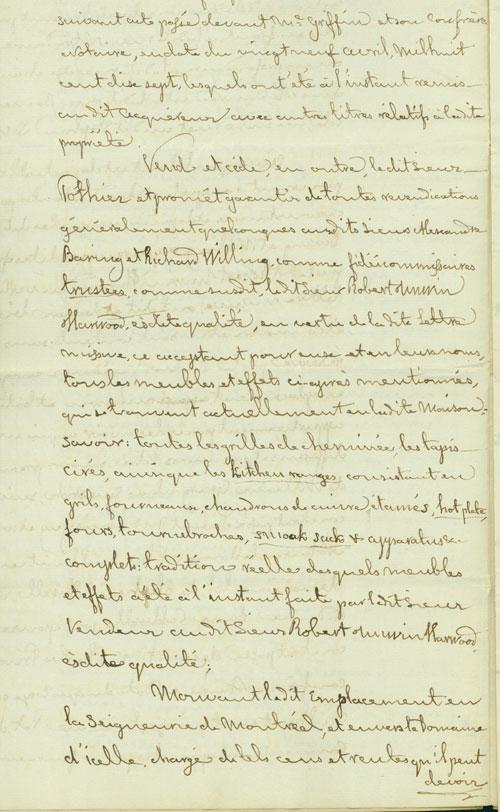 suivant acte passé devant Mr. Griffin et son confrère
Notaire, en date du vingt neuf avril, Mil huit
cent dix sept, lesquels ont été à l'instant remis
au dit acquéreur avec autres titres rélatifs à la dite
propriété
Vend et cède, en outre, le dit Sieur
Pothier et promet garantir de toutes revendications
généralement quelconques au dits Sieurs Alexandre
Baring et Richard Willing, comme fidéicommissaires
trustees, comme susdit, le dit Sieur Robert Unwin
Harwood, esdite qualité, en vertu de la dite Lettre
missive, ce acceptant pour eux et en leurs noms,
tous les meubles et effets ci-après mentionnés,
qui se trouvent actuellement en la dite Maison:
Savoir: toutes les grilles de cheminée, les tapis
cirés, ainsi que les kitchen ranges consistant en
grils, fourneaux, chaudrons de cuivre étamés, hot plate,
fours, tournebroches, smoak jack & apparatus &c
complets: tradition réelle desquels meubles
et effets a été à l'instant faite par le dit Sieur
Vendeur au dit Sieur Robert Unwin Harwood,
èsdite qualité;
Mouvant le dit Emplacement en
la Seigneurie de Montréal, et envers le domaine
d'icelle, chargé de tels cens et rentes qu'il peut
devoir